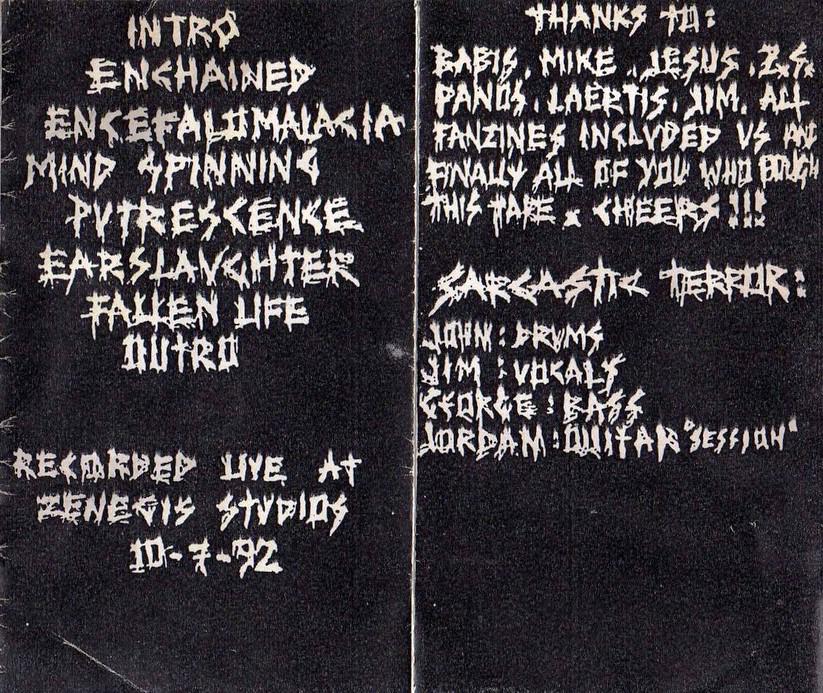 INTRO
ENCHAINED
ENCEFALOMALACIA
MIND SPINNING
PUTRESCENCE
EARSLAUGHTER
FALLEN LIFE
OUTRO
RECORDED LIVE AT
ZENEGIS STUDIOS
10-7-92
THANKS TO:
BABIS, MIKE, JESUS, Z.S.
PANOS, LAERTIS, JIM, ALL
FANZINES INCLUDED US AND
FINALLY ALL OF YOU WHO BOUGH
THIS TAPE. CHEERS!!!
SARCASTIC TERROR:
JOHN: DRUMS
JIM: VOCALS
GEORGE: BASS
JORDAN: GUITAR "SESSION"